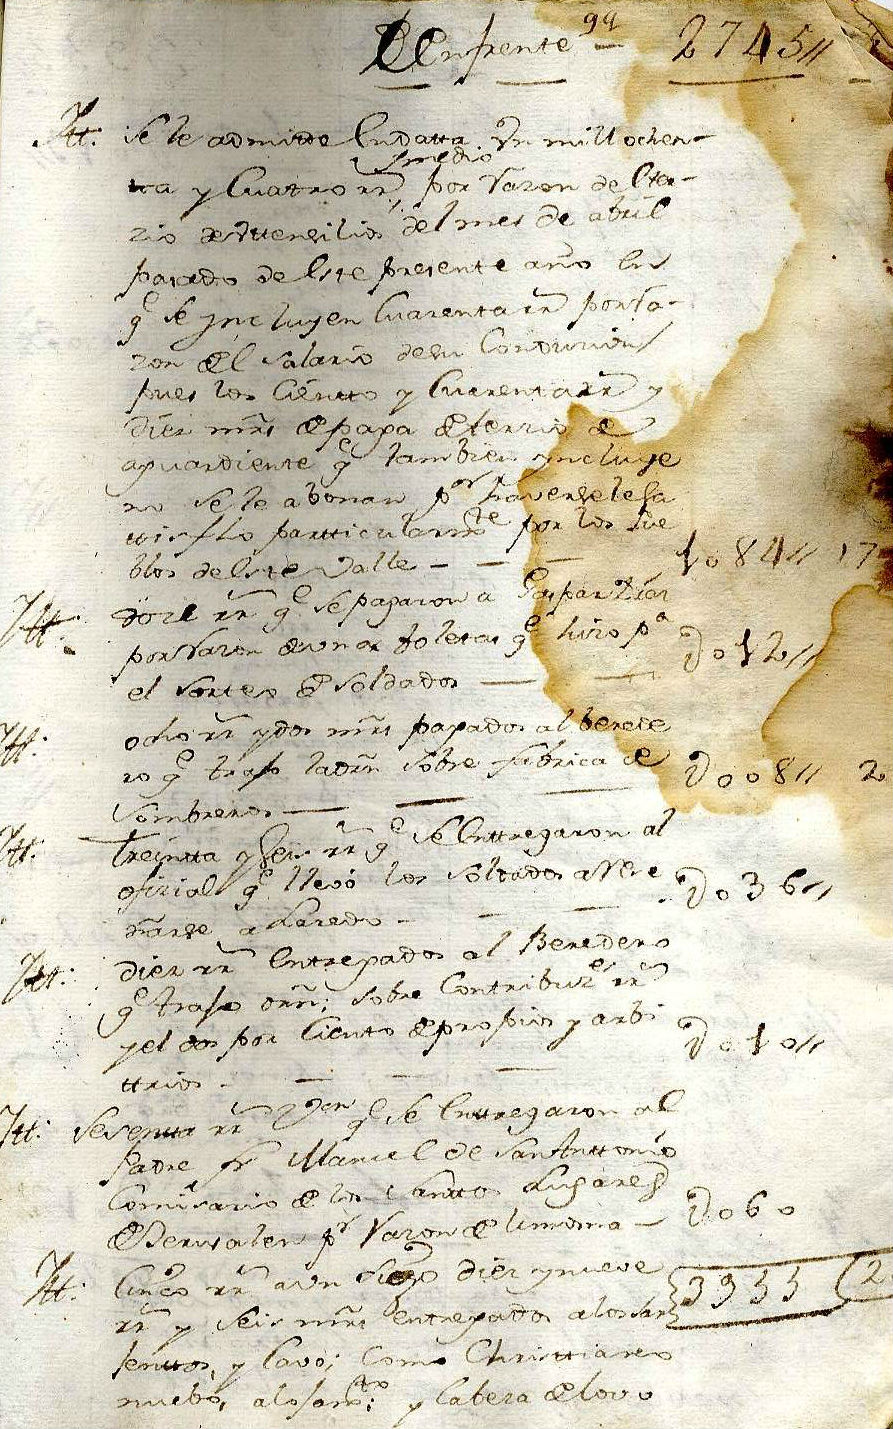 Enfrente 2745//
Itt. Se le admite En datta Un mill ochen-
y medio
ta y Cuatro rrs, por Razon de Eta-
rio de Uttensilios del mes de abril
pasado de Este presente año En
q.e se yncluyen Cuarenta rrs por Ra-
zon del Salario de su Conduzion
pues los Ciento y Cuarenta rrs y
diez mrs de paga de terzio de
aguardiente q.e tambien yncluye
no se le abonan p.or haversele sa
ttisfho partticularm.te por los Pue
blos de Este Valle - - - 1084// 17
Itt. doze rrs q.e se pagaron a Gaspar Diaz
por Razon de unas boletas q.e hizo p.a
el Sorteo de Soldados — — Do12//
Itt. ocho rrs y dos mrs pagados al berede
ro q.e trajo la orn sobre fabrica de
Sombreros — — — Doo8// 2
Itt. Treintta y Seis rrs q.e se Enttregaron al
ofizial q.e llevó los Soldados a
a Laredo - - - Do36//
Itt. diez rrs Entregados al Beredero
q.e trajo orn; sobre Contribuz.es rrs
y el dos por Ciento de propios y arbi
ttrios - - - - Do10//
Itt. Sesentta rrs q.e se Enttregaron al
Padre fr Manuel de San Anttonio
Comisario de los Santtos Lugares
de Jerusalen p.r Razon de limosna — Do60
Itt. Cinco rrs a un Ciego diez y nueve 3955 2
rrs y seis mrs entregados a los
y Cavo; Como Christtiano
nuebo, y Cabeza de lovo